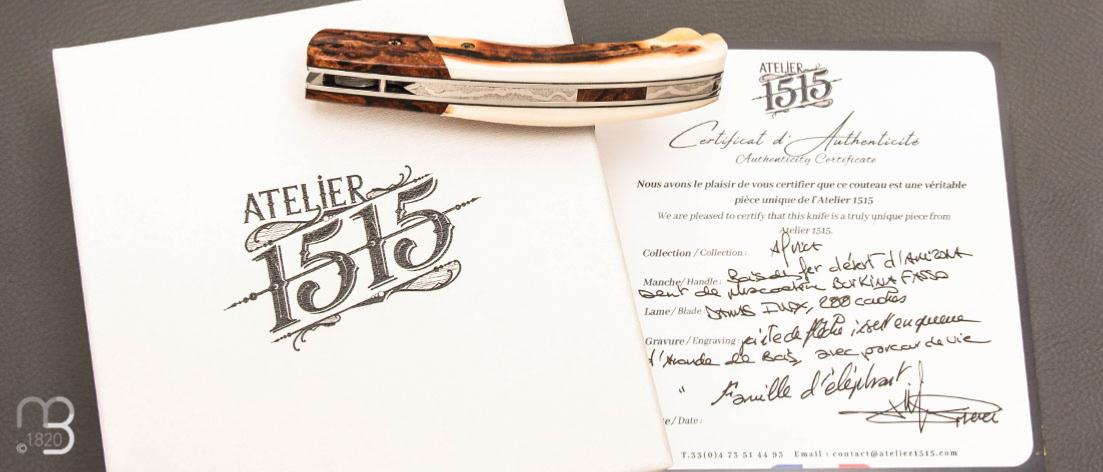 ATELIER
1515
ATELIER
1515
Certificat d'Authenticité
Authenticity Certificate
Nous avons le plaisir de vous certifier que ce couteau est une véritable
pièce unique de l'Atelier 1515
We are pleased to certify that this knife is a truly unique piece from
Atelier 1515.
Collection / Collection : Africa
Manche / Handle : Bois de fer désert d'ARIZONA
dent de phacochère BURKINA FASSO
Lame / Blade : DAMAS INOX, 200 couches
Gravure / Engraving : pointe de flèche en queue
d'Aronde de Bois, avec parcours de vie
" Famille d'éléphant"
e / Date :
T.33(0)4 73 51 44 93 Email : contact@atelier1515.com
MB
©1820